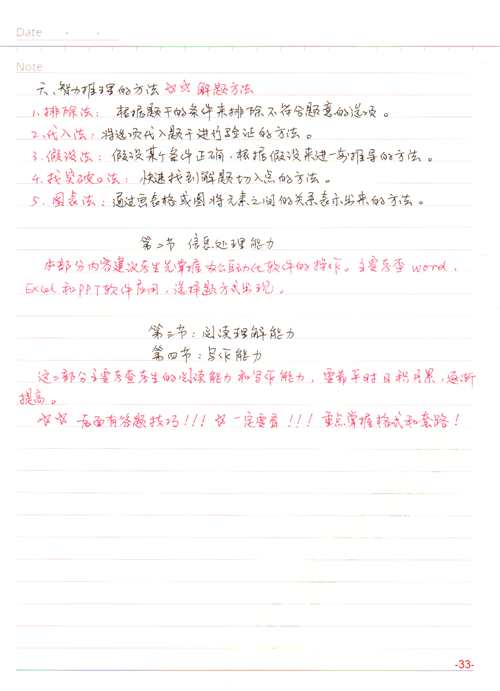 Date · ·
Note
六、智力推理的方法 ☆☆ 解题方法
1.排除法：根据题干的条件来排除不符合题意的选项。
2.代入法：将选项代入题干进行验证的方法。
3.假设法：假设某个条件正确，根据假设来进一步推导的方法。
4.找突破口法：快速找到解题切入点的方法。
5.图表法：通过画表格或图将元素之间的关系表示出来的方法。
第二节 信息处理能力
本部分内容建议考生先掌握办公自动化软件的操作。主要考查word、
Excel和PPT软件应用，选择题方式出现。
第三节：阅读理解能力
第四节：写作能力
这二部分主要考查考生的阅读能力和写作能力，需靠平时日积月累，逐渐
提高。
☆☆ 后面有答题技巧！！！☆一定要看！！！重点掌握格式和套路！
-33-